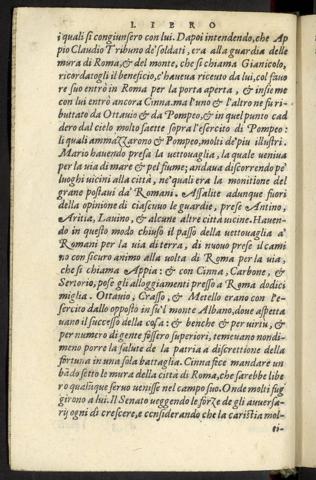 LIBRO
i quali si congiunsero con lui. Dapoi intendendo, che Ap
pio Claudio Tribuno de' soldati, era alla guardia delle
mura di Roma, & del monte, che si chiama Gianicolo,
ricordatogli il beneficio, c'haueua riceuto da lui, col fauo
re suo entrò in Roma per la porta aperta, & insieme
con lui entrò ancora Cinna. ma l'uno & l'altro ne fu ri-
buttato da Ottauio & da Pompeo, & in quel punto cad
dero dal cielo molto saette sopra l'esercito di Pompeo:
li quali ammazzarono & Pompeo, molti de' piu illustri.
Mario hauendo presa la vettouaglia, la quale veniua
per la via di mare & pel fiume; andaua discorrendo pe'
luoghi uicini alla città, ne' quali era la monitione del
grano postaui da' Romani. Assalite adunque fiori
della opinione di ciascuuo le guardie, prese Antino,
Aritia, Lauino, & alcune altre città uicine. Hauen-
do in questo modo chiuso il passo della vettouaglia a'
Romani per la via di terra, di nuouo prese il cami
no con sicuro animo alla uolta di Roma per la via,
che si chiama Appia: & con Cinna, Carbone, &
Sertorio, pose gli alloggiamenti presso a Roma dodici
miglia. Ottauio, Crasso, & Metello erano con l'e-
sercito dallo opposto in su'l monte Albano, doue aspetta
uano il successo della cosa: & benche & per uirtu, &
per numero di gente fossero superiori, temeuano nondi-
meno porre la salute de la patria a discrettione della
fortuna in una sola battaglia. Cinna fece mandare un
bādo sotto le mura della città di Roma, che sarebbe libe
ro qualūque seruo uenisse nel campo suo. Onde molti fug
girono a lui. Il Senato ueggendo le forze de gli auuersa-
rij ogni dì crescere, e considerando che la caristia mol-
ti-